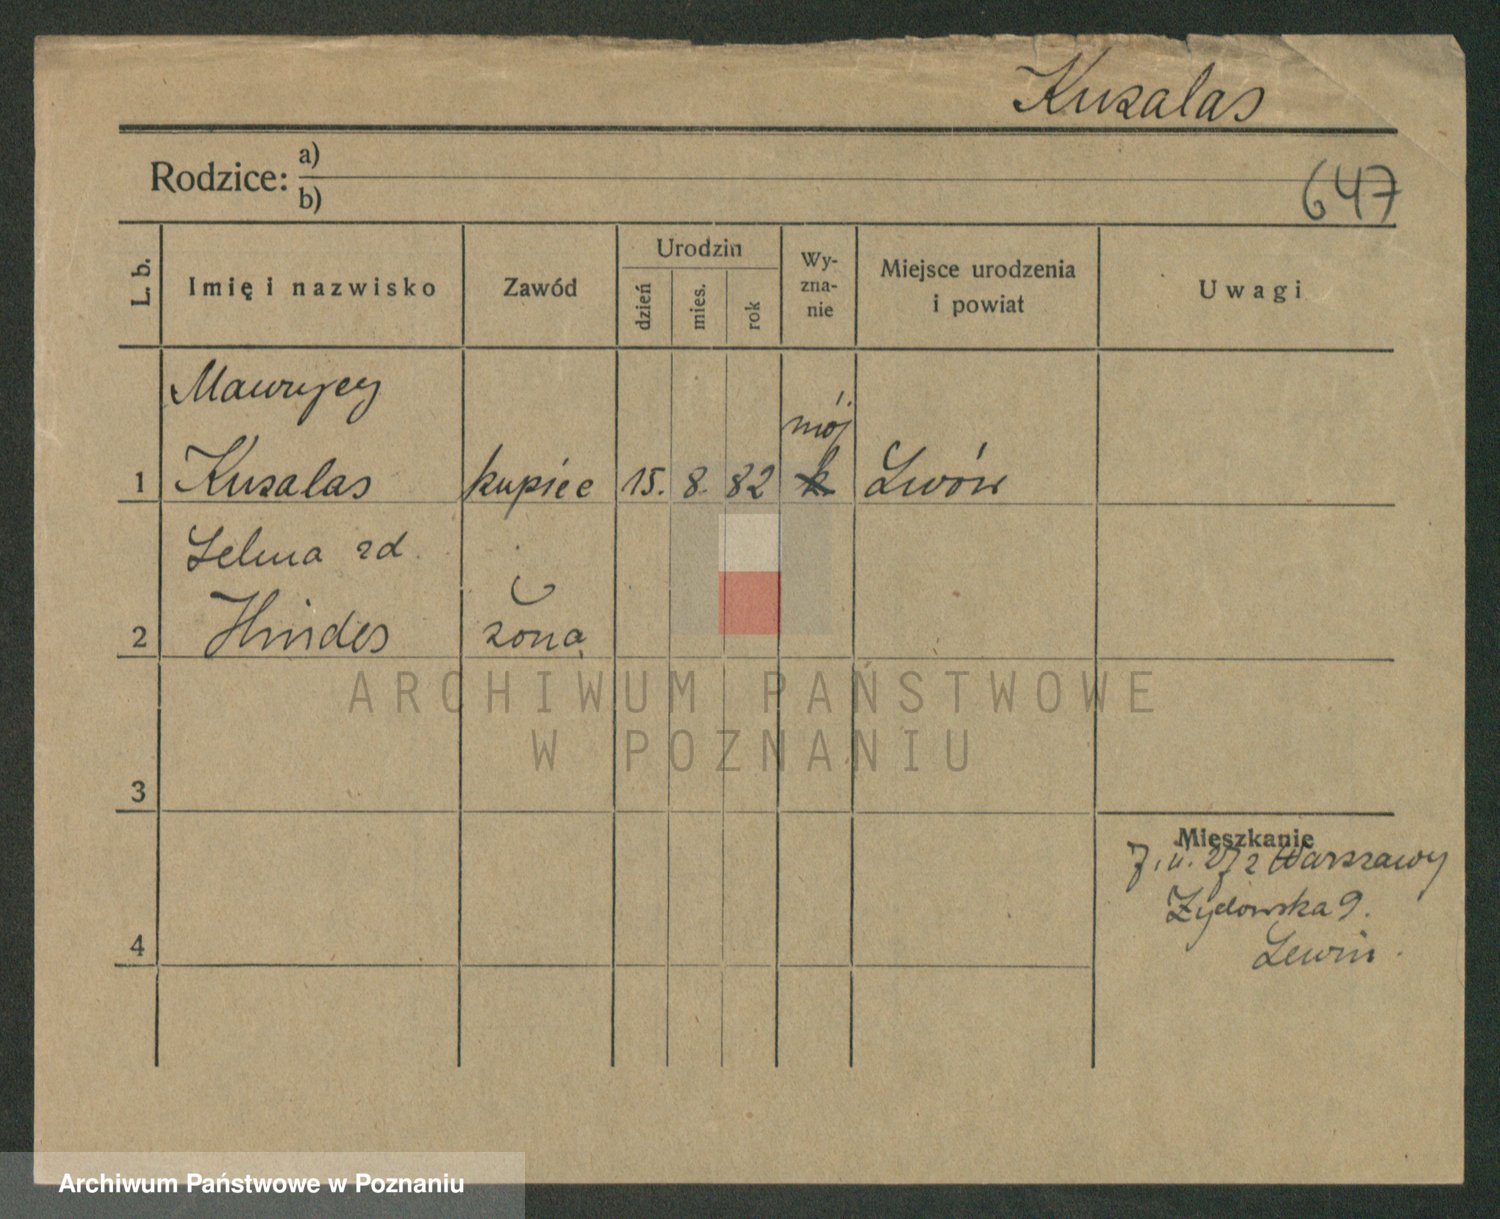 Kuzalas
Rodzice: a)
b)
647
L. b.
Imię i nazwisko
Zawód
Urodzin
dzień
mies.
rok
Wy-
zna-
nie
Miejsce urodzenia
i powiat
Uwagi
Maurycy
mój.
1 Kuzalas kupiec 15. 8. 82 k Lwów
Selma zd.
2 Hindes żona
ARCHIWUM PAŃSTWOWE
W POZNANIU
3
Mieszkanie
7. 11. 27 z Warszawy
Żydowska 9.
4
Lewin.
Archiwum Państwowe w Poznaniu